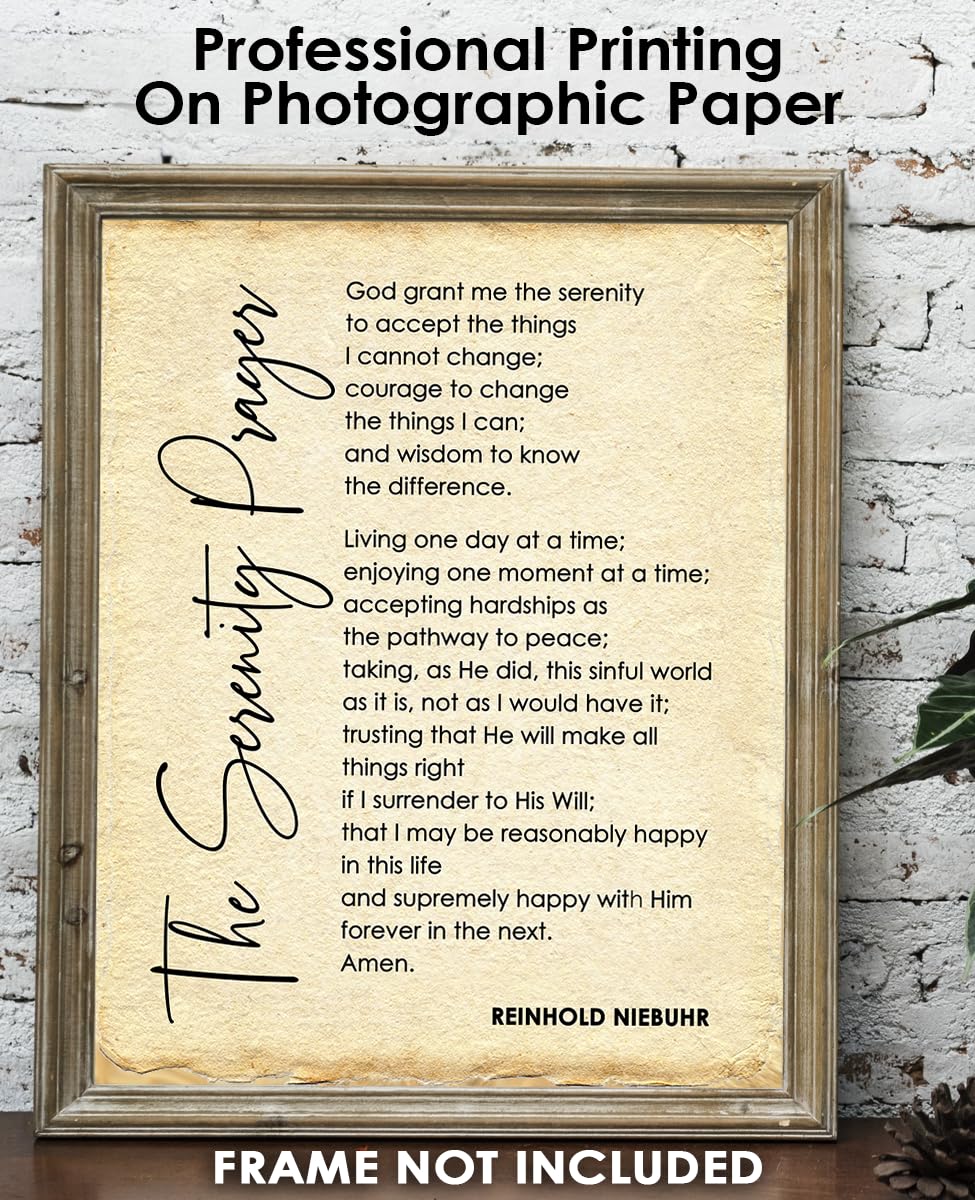 Professional Printing
On Photographic Paper
The Serenity Prayer
God grant me the serenity
to accept the things
I cannot change;
courage to change
the things I can;
and wisdom to know
the difference.
Living one day at a time;
enjoying one moment at a time;
accepting hardships as
the pathway to peace;
taking, as He did, this sinful world
as it is, not as I would have it;
trusting that He will make all
things right
if I surrender to His Will;
that I may be reasonably happy
in this life
and supremely happy with Him
forever in the next.
Amen.
REINHOLD NIEBUHR
FRAME NOT INCLUDED